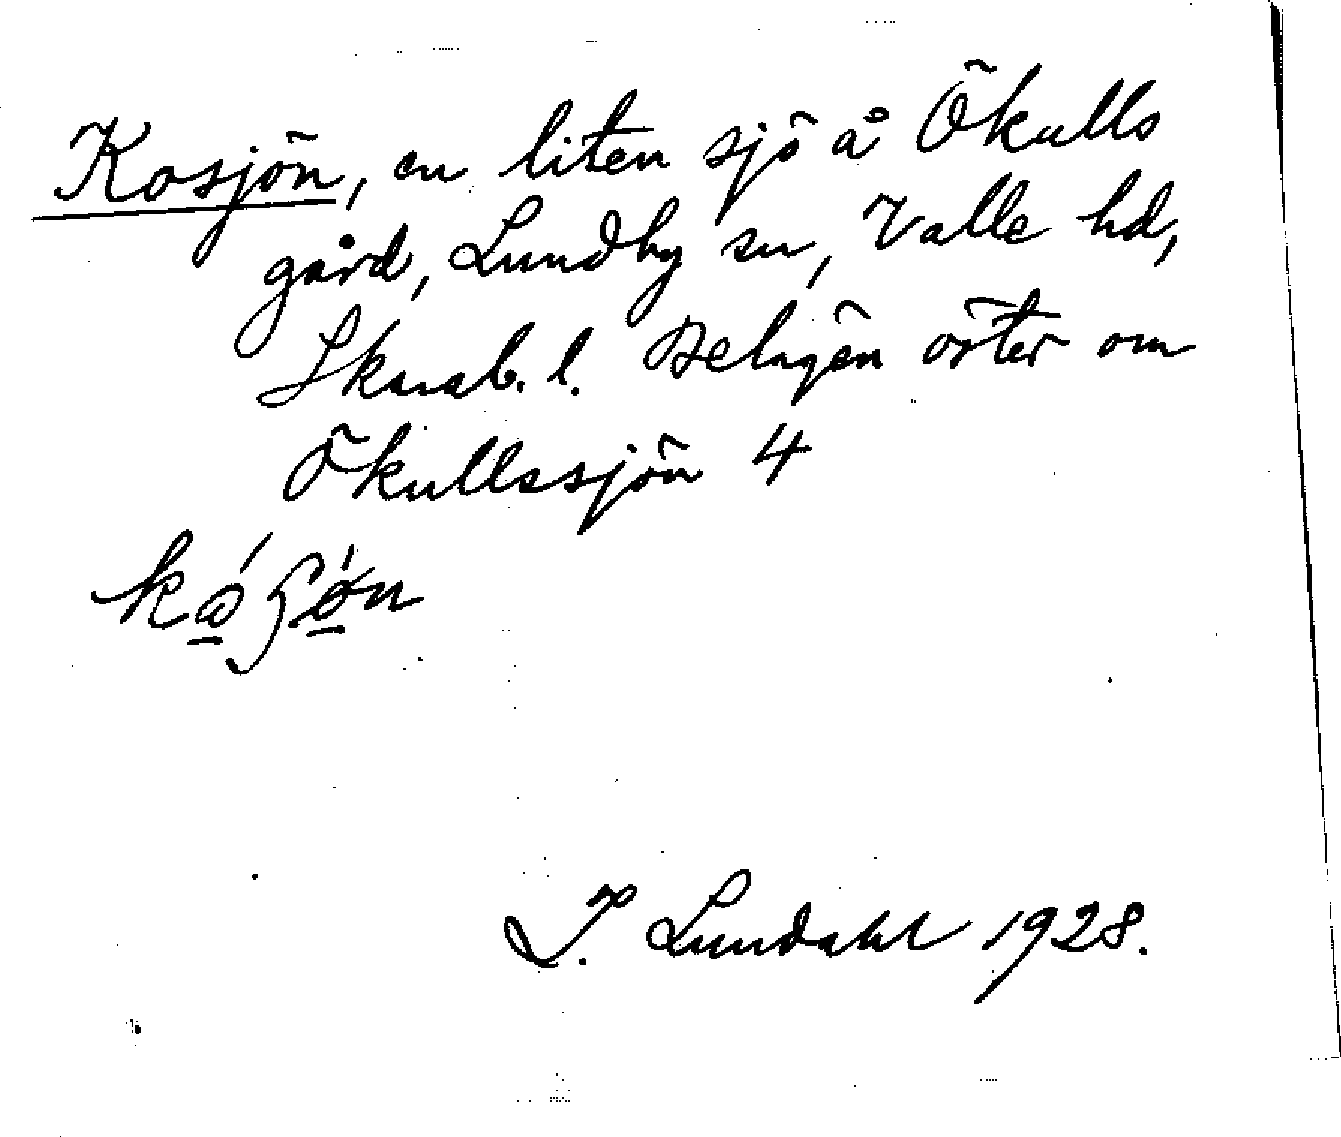 Kosjön, en liten sjö å Ökulls
gård, Lundby sn, Valle hd,
Skarab. l. Belägen öster om
Ökullssjön 4
I. Lundahl 1928.